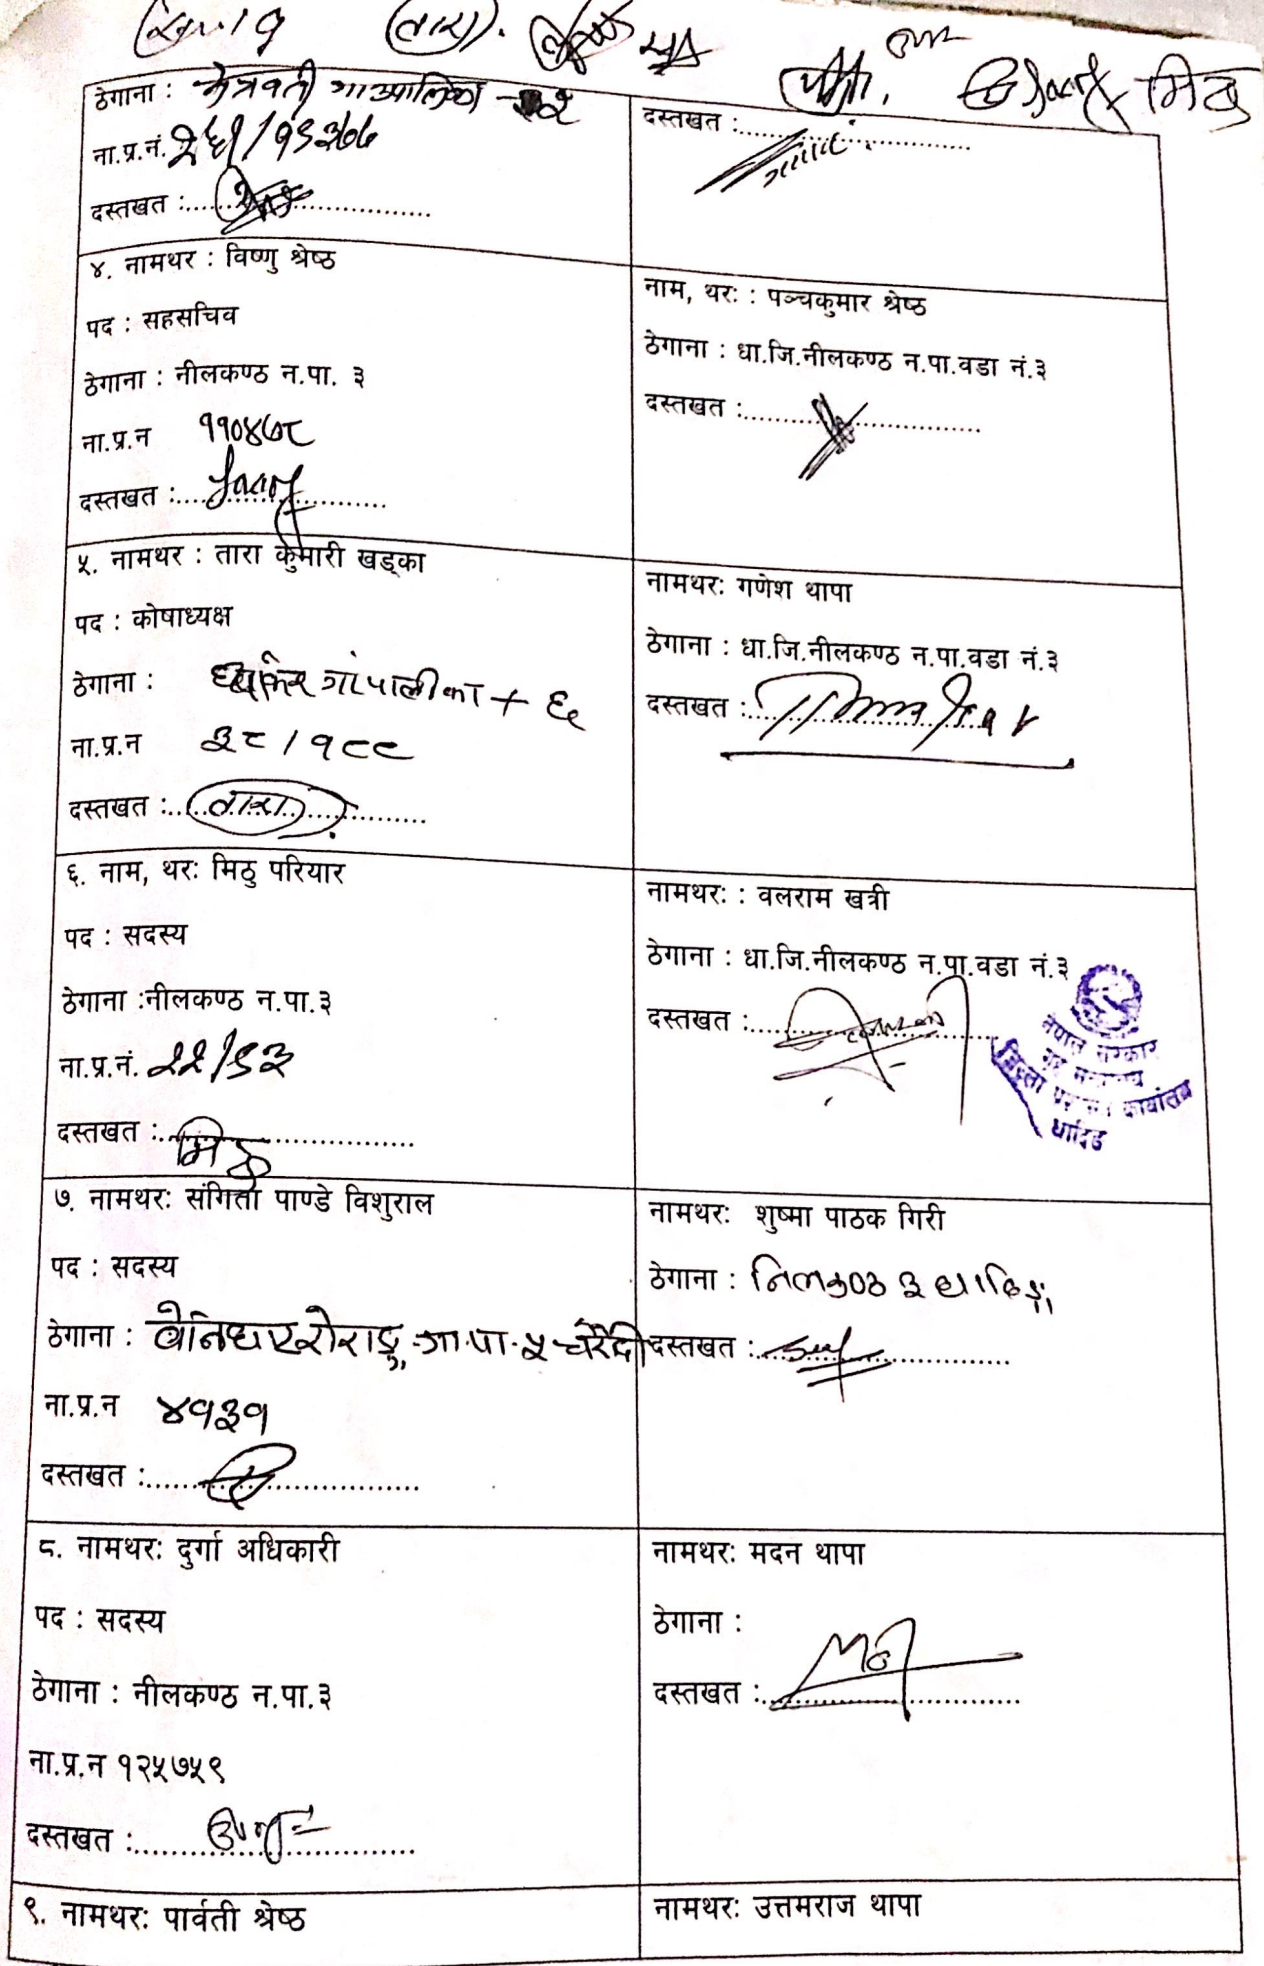 ठेगाना :
ना.प्र.नं.
दस्तखत :
दस्तखत :
४. नामथर : विष्णु श्रेष्ठ
पद : सहसचिव
ठेगाना : नीलकण्ठ न.पा. ३
ना.प्र.न ११०४७८
दस्तखत :
नाम, थरः : पञ्चकुमार श्रेष्ठ
ठेगाना : धा.जि.नीलकण्ठ न.पा.वडा नं.३
दस्तखत :
५. नामथर : तारा कुमारी खड्का
पद : कोषाध्यक्ष
ठेगाना :
ना.प्र.न ३८/१८८
दस्तखत : तारा
नामथरः गणेश थापा
ठेगाना : धा.जि.नीलकण्ठ न.पा.वडा नं.३
दस्तखत :
६. नाम, थरः मिठु परियार
पद : सदस्य
ठेगाना :नीलकण्ठ न.पा.३
ना.प्र.नं. २२/९३
दस्तखत : मिठु
नामथरः : वलराम खत्री
ठेगाना : धा.जि.नीलकण्ठ न.पा.वडा नं.३
दस्तखत :
नेपाल सरकार
गृह मन्त्रालय
जिल्ला प्रशासन कार्यालय
धादिङ
७. नामथरः संगिता पाण्डे विशुराल
पद : सदस्य
ठेगाना : गा.पा.५
ना.प्र.न ४१३१
दस्तखत :
नामथरः शुष्मा पाठक गिरी
ठेगाना : निलकण्ठ ३ धादिङ
दस्तखत :
८. नामथरः दुर्गा अधिकारी
पद : सदस्य
ठेगाना : नीलकण्ठ न.पा.३
ना.प्र.न १२५७५९
दस्तखत :
नामथरः मदन थापा
ठेगाना :
दस्तखत :
९. नामथरः पार्वती श्रेष्ठ
नामथरः उत्तमराज थापा